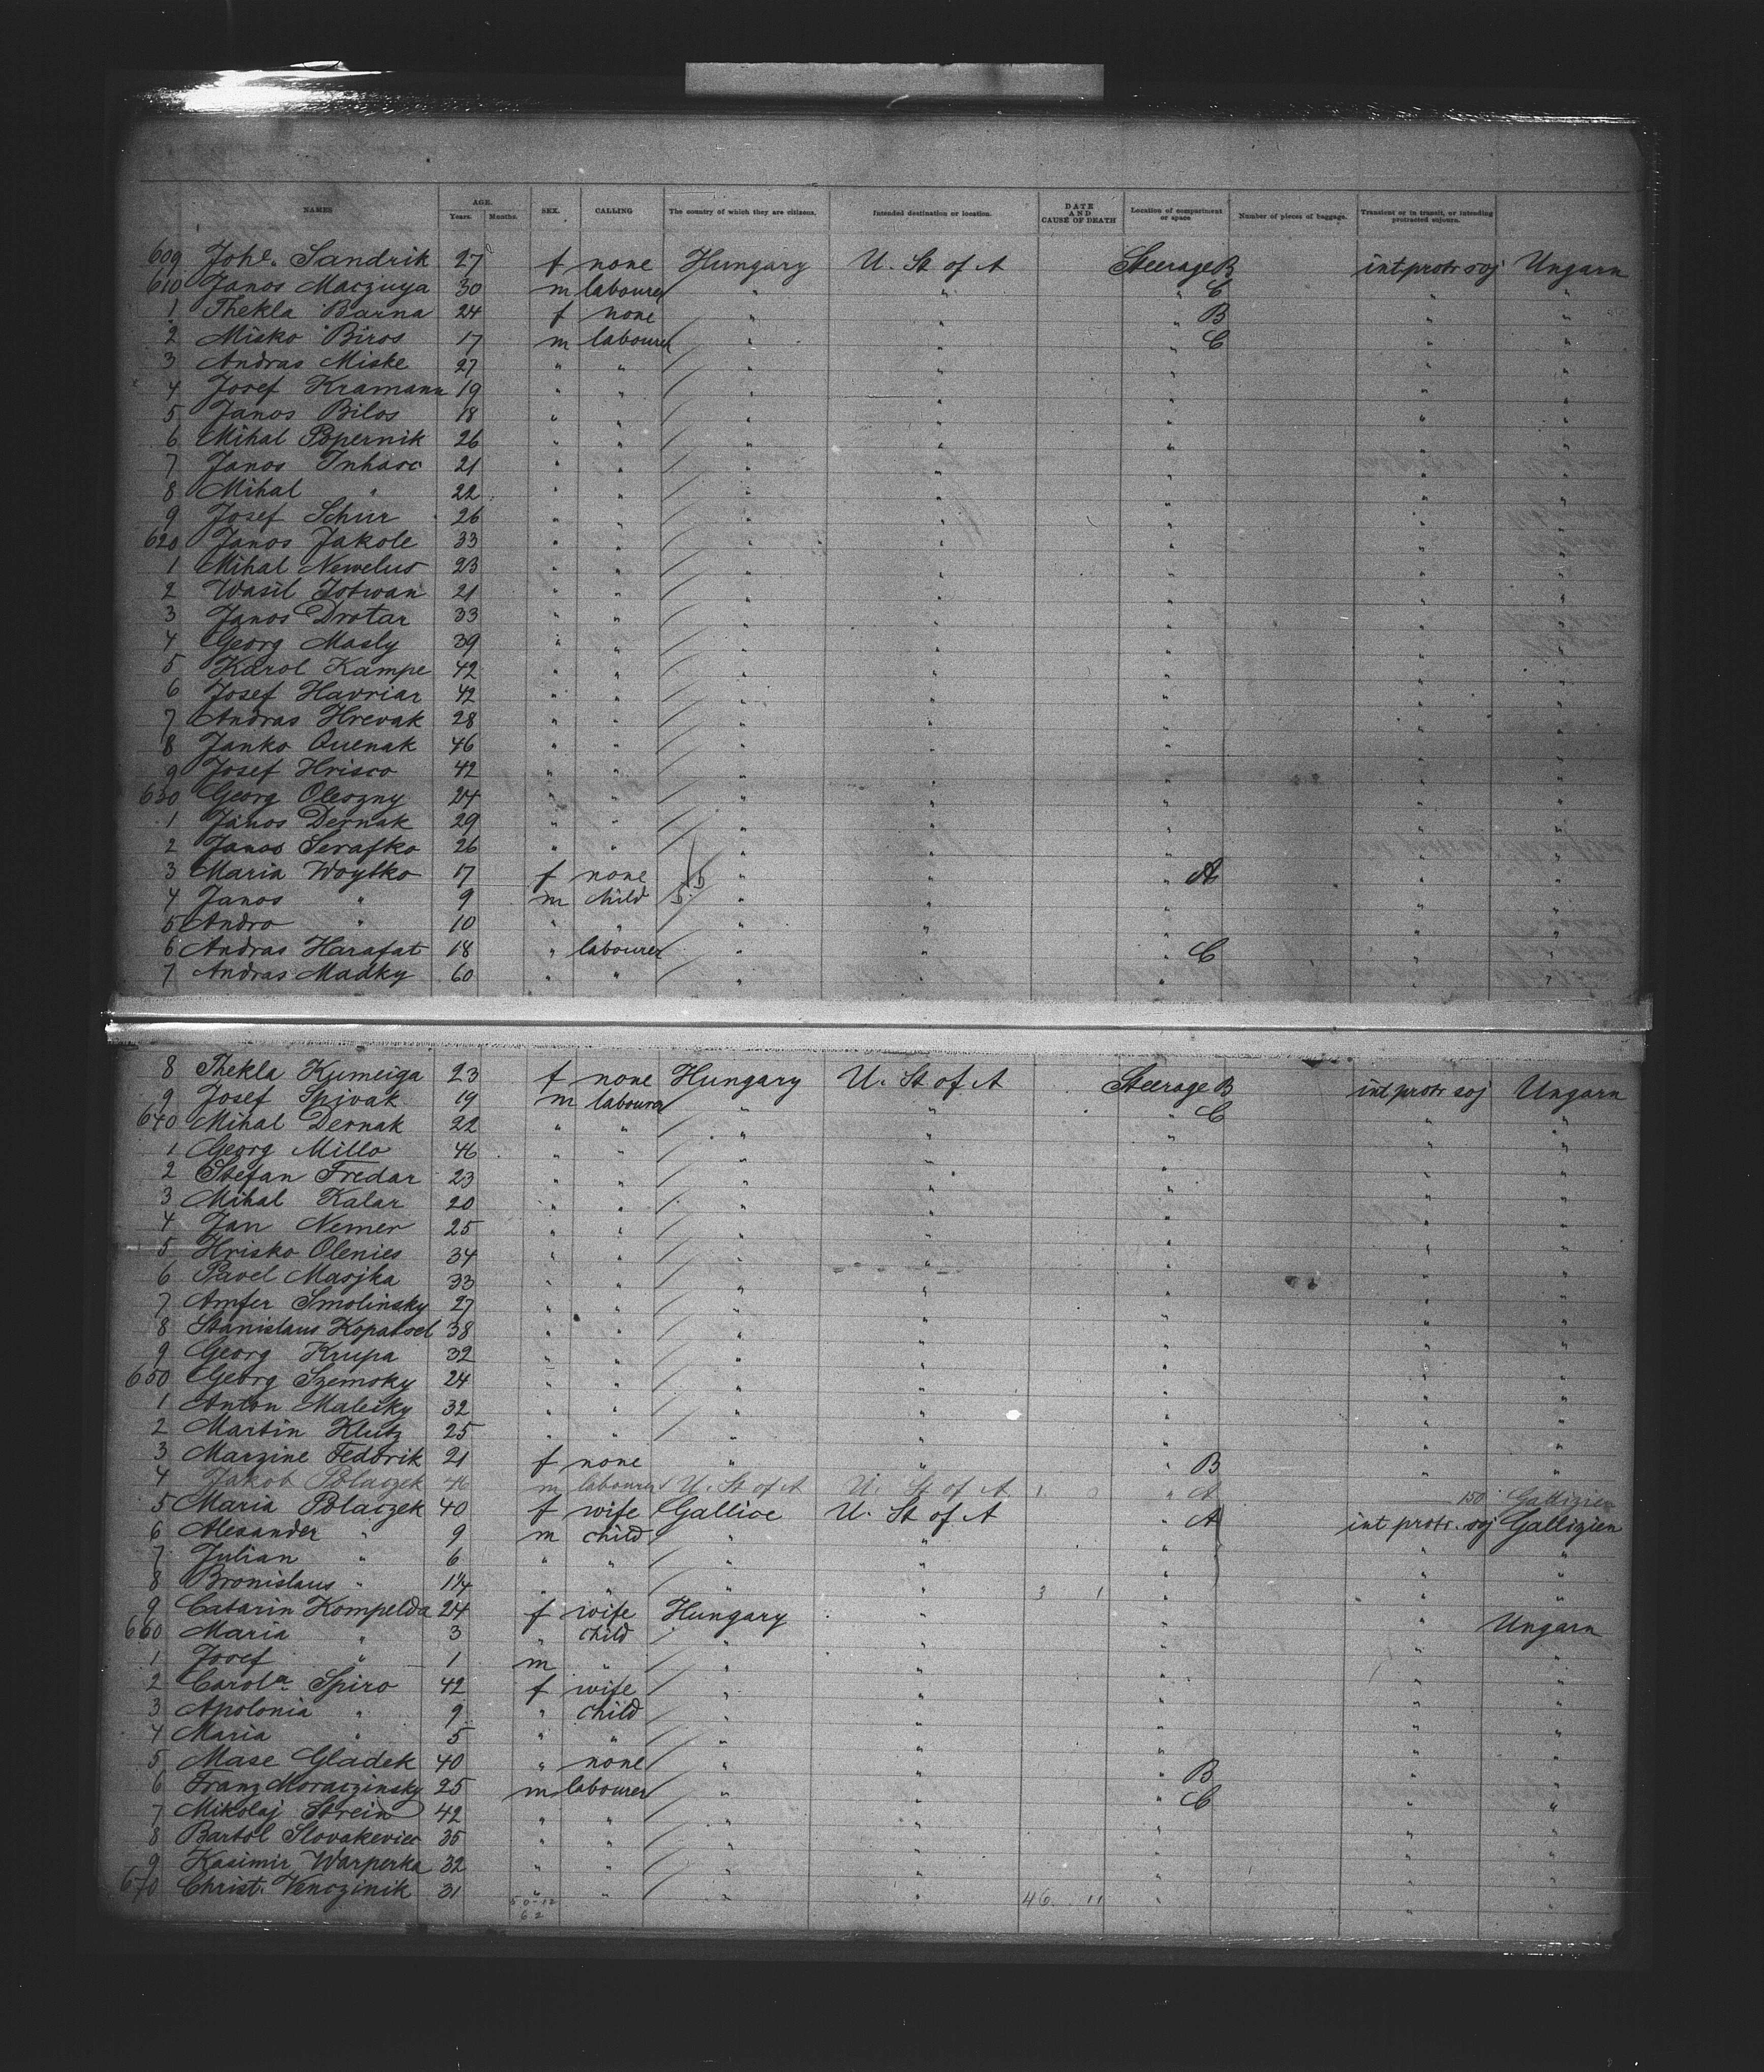 NAMES AGE. Years. Months. SEX. CALLING The country of which they are citizens. Intended destination or location. DATE AND CAUSE OF DEATH Location of compartment or space Number of pieces of baggage. Transient or in transit, or intending protracted sojourn.
609 Johe. Sandrik 27 f none Hungary U. St of A Steerage B int protr soj Ungarn
610 Janos Maczuya 30 m labourer " " " C " "
1 Thekla Barna 24 f none " " " B " "
2 Misko Biros 17 m labourer " " " C " "
3 Andras Miske 27 " " " " " " "
4 Josef Kramann 19 " " " " " " "
5 Janos Bilos 18 " " " " " " "
6 Mihal Popernik 26 " " " " " " "
7 Janos Inhasc 21 " " " " " " "
8 Mihal " 22 " " " " " " "
9 Josef Schur 26 " " " " " " "
620 Janos Jakole 33 " " " " " " "
1 Mihal Newelus 23 " " " " " " "
2 Wasil Jotwan 21 " " " " " " "
3 Janos Drotar 33 " " " " " " "
4 Georg Masly 39 " " " " " " "
5 Karol Kampe 42 " " " " " " "
6 Josef Havriar 42 " " " " " " "
7 Andras Hrevak 28 " " " " " " "
8 Janko Quenak 46 " " " " " " "
9 Josef Hrisco 42 " " " " " " "
630 Georg Oleszny 24 " " " " " " "
1 Janos Dernak 29 " " " " " " "
2 Janos Serafko 26 " " " " " " "
3 Maria Woytko 17 f none " " " A " "
4 Janos " 9 m child " " " " "
5 Andro " 10 " " " " " " "
6 Andras Harafat 18 " labourer " " " C " "
7 Andras Madky 60 " " " " " " "
8 Thekla Kumeiga 23 f none Hungary U. St of A Steerage B int protr soj Ungarn
9 Josef Spivak 19 m labourer " " " C " "
640 Mihal Dernak 22 " " " " " " "
1 Georg Millo 46 " " " " " " "
2 Stefan Fredar 23 " " " " " " "
3 Mihal Kalar 20 " " " " " " "
4 Jan Nemer 25 " " " " " " "
5 Hrisko Olenies 34 " " " " " " "
6 Pavel Masjka 33 " " " " " " "
7 Amfer Smolinsky 27 " " " " " " "
8 Stanislaus Kopatsel 38 " " " " " " "
9 Georg Krupa 32 " " " " " " "
650 Georg Szemsky 24 " " " " " " "
1 Anton Malecky 32 " " " " " " "
2 Martin Klutz 25 " " " " " " "
3 Marzine Fedorik 21 f none " " " B " "
4 Jakob Polaczek 46 m labourer U. St of A U. St of A 1 0 " A 150 Gallizien
5 Maria Polaczek 40 f wife Gallice U. St of A " A int protr. soj Gallizien
6 Alexander " 9 m child " " " " "
7 Julian " 6 " " " " " " "
8 Bronislaus " 1¼ " " " " 3 1 " " "
9 Catarin Kompelda 24 f wife Hungary " " " Ungarn
660 Maria " 3 " child " " " " "
1 Josef " 1 m " " " " " "
2 Carola Spiro 42 f wife " " " " "
3 Apolonia " 9 " child " " " " "
4 Maria " 5 " " " " " " "
5 Mase Gladek 40 " none " " " B " "
6 Franz Moraczinsky 25 m labourer " " " C " "
7 Mikolaj Strein 42 " " " " " " "
8 Bartol Slovakeviec 35 " " " " " " "
9 Kasimir Warperka 32 " " " " " " "
670 Christ. Venczinik 31 " " " " 46 11 " " "
50-12
62